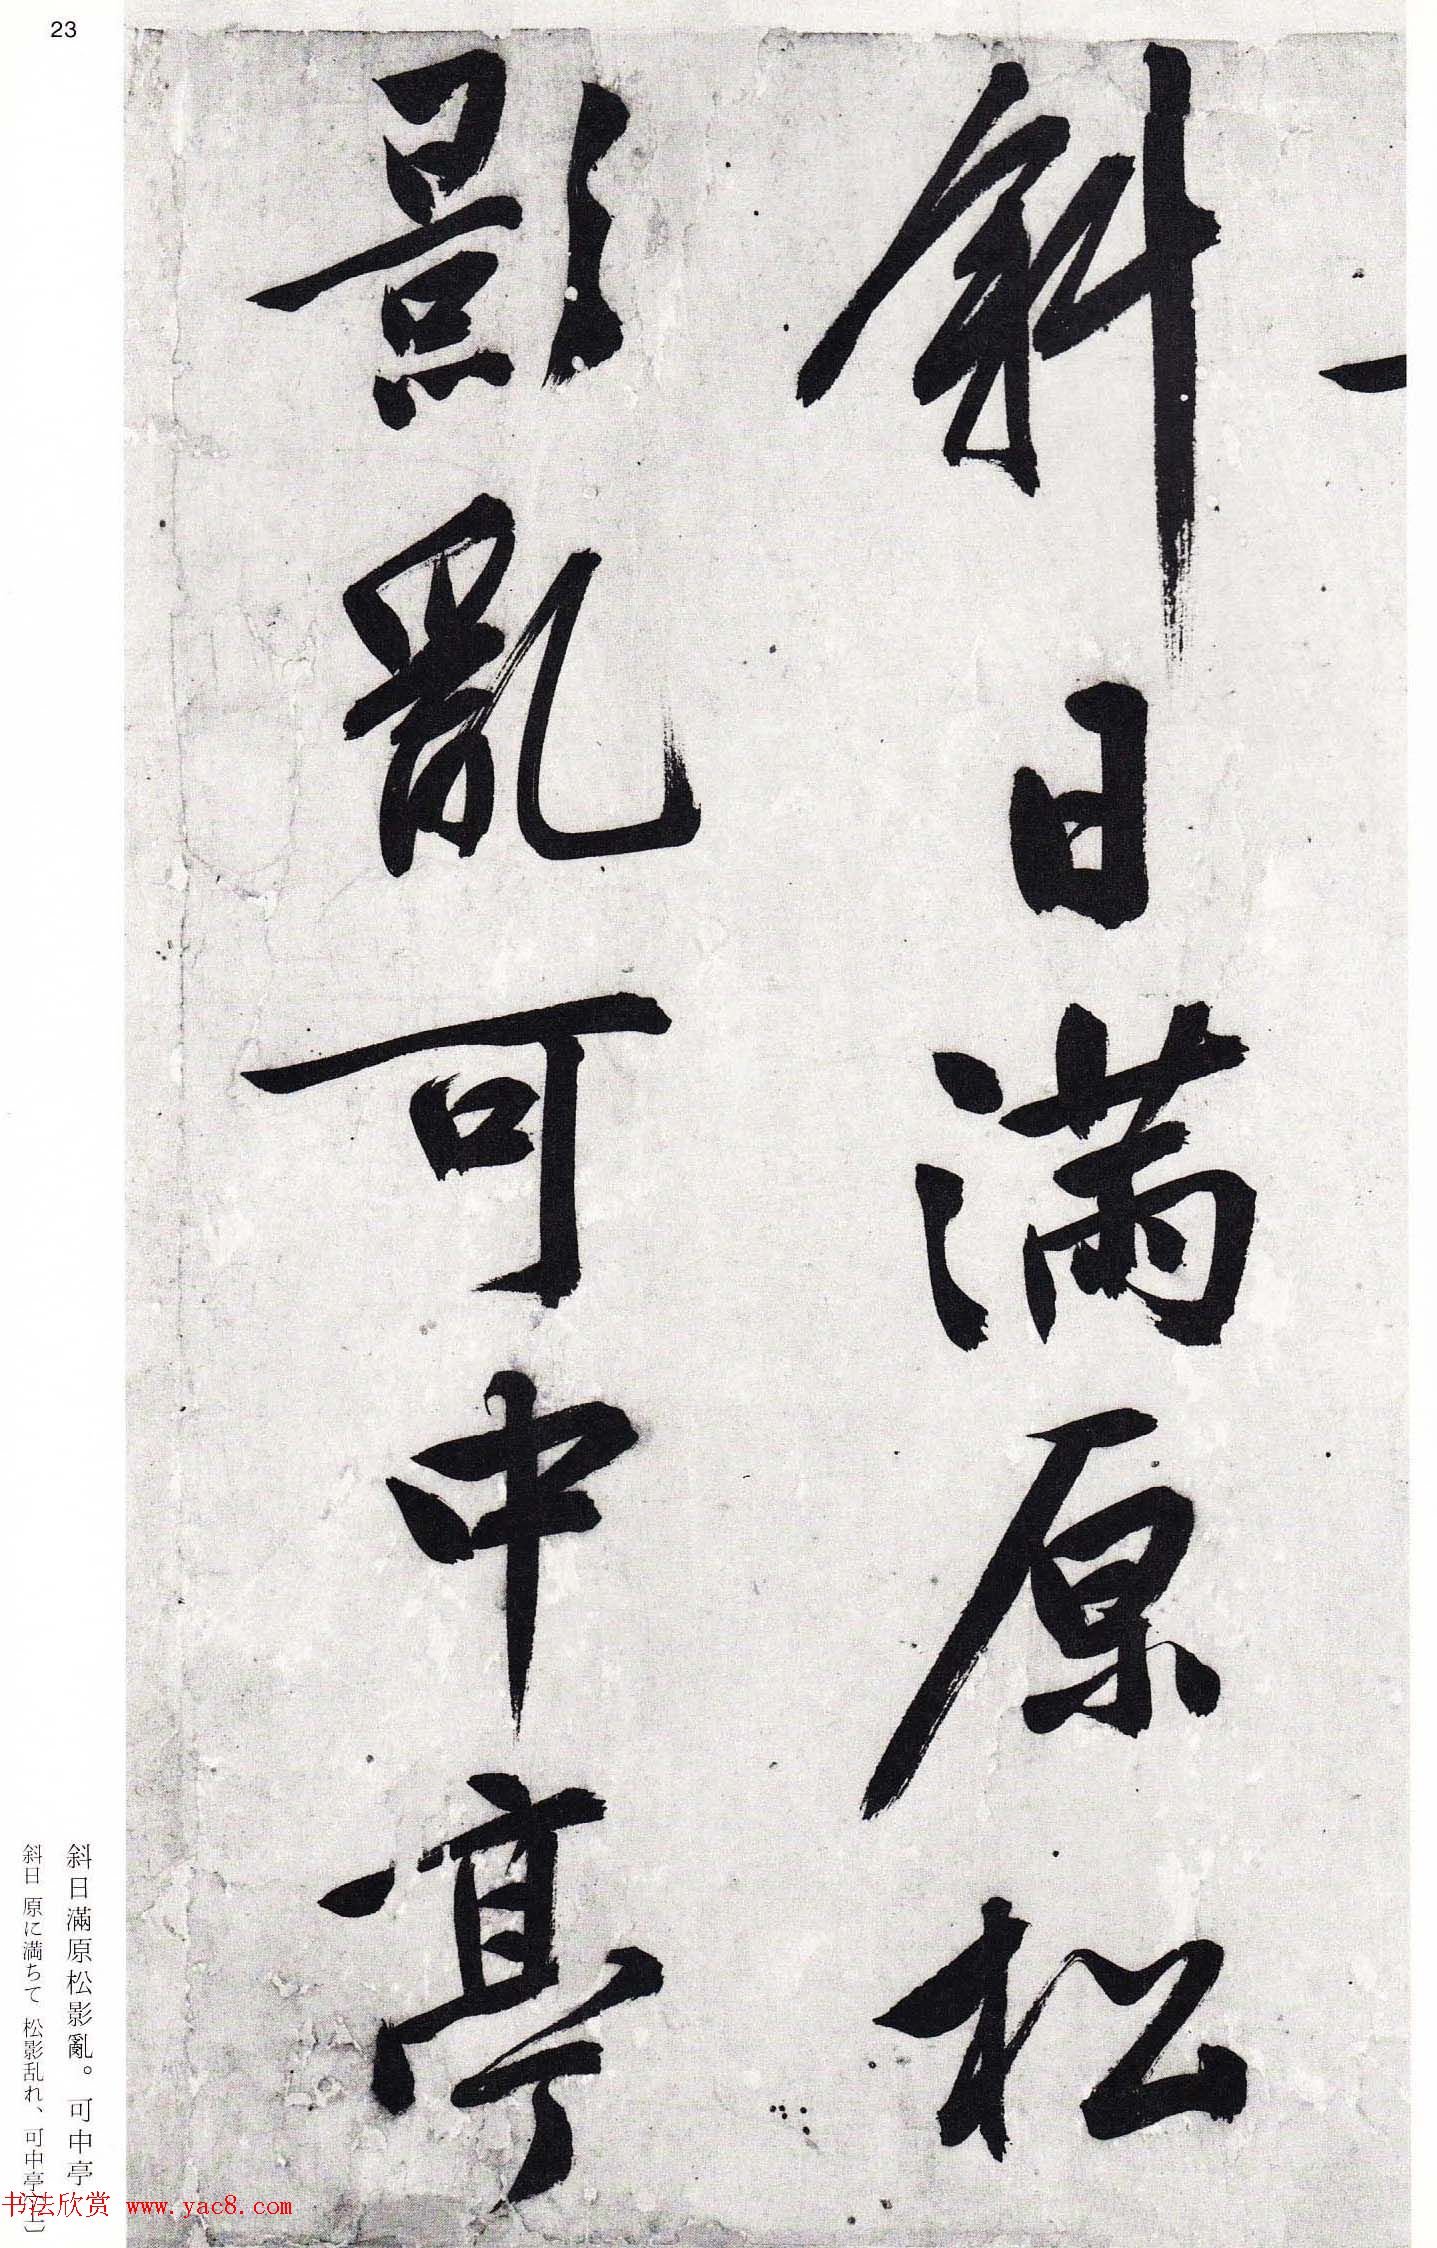 23
斜日滿原松
影亂可中亭
斜日滿原松影亂。可中亭
斜日 原に満ちて 松影乱れ、可中亭
书法欣赏 www.yac8.com